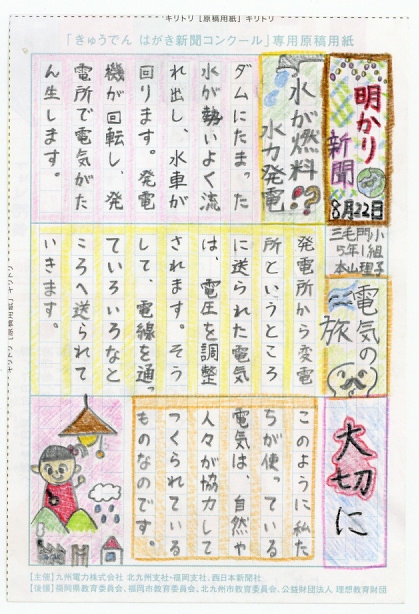 キリトリ【原稿用紙】キリトリ
「きゅうでん はがき新聞コンクール」専用原稿用紙
明かり
新聞
8月22日
三毛門小
5年1組
本山理子
水が燃料!?
水力発電
ダムにたまった
水が勢いよく流
れ出し、水車が
回ります。発電
機が回転し、発
電所で電気がた
ん生します。
電気の
旅
発電所から変電
所というところ
に送られた電気
は、電圧を調整
されます。そう
して、電線を通っ
ていろいろなと
ころへ送られて
いきます。
大切に
このように私た
ちが使っている
電気は、自然や
人々が協力して
つくられている
ものなのです。
【主催】九州電力株式会社 北九州支社・福岡支社、西日本新聞社
【後援】福岡県教育委員会、福岡市教育委員会、北九州市教育委員会、公益財団法人 理想教育財団